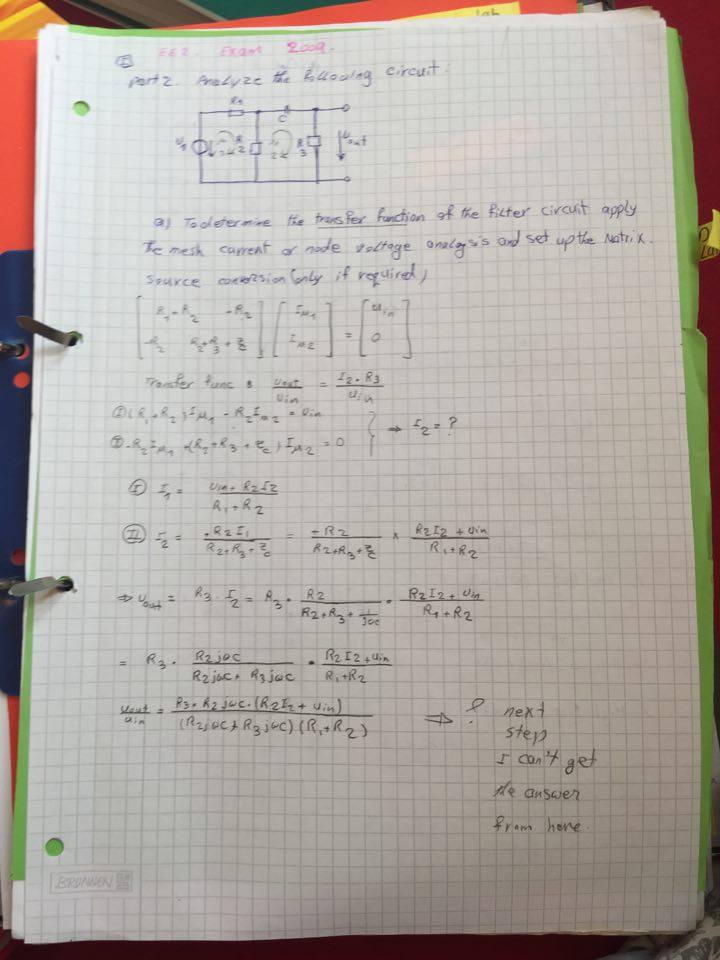 lab
EE2. Exam 2009.
I
Part 2. Analyze the following circuit:
R1
C
U1
R2
R3
Uout
a) To determine the transfer function of the filter circuit apply
the mesh current or node voltage analysis and set up the Matrix.
Source conversion (only if required)
[R1+R2 -R2] [Iμ1] = [Uin]
[-R2 R2+R3+Zc] [Iμ2] [0]
Transfer func : Uout/Uin = I2·R3/Uin
I (R1+R2)Iμ1 - R2Iμ2 = Uin
II -R2Iμ1 +(R2+R3+Zc)Iμ2 = 0 } ⇒ I2 = ?
I I1 = Uin+R2I2/R1+R2
II I2 = +R2I1/R2+R3+Zc = +R2/R2+R3+Zc × R2I2+Uin/R1+R2
⇒ Uout = R3·I2 = R3 · R2/R2+R3+1/jωc · R2I2+Uin/R1+R2
= R3 · R2jωc/R2jωc+R3jωc · R2I2+Uin/R1+R2
Uout/Uin = R3·R2jωc·(R2I2+Uin)/(R2jωc+R3jωc)(R1+R2) ⇒ ? next
step
I can't get
the answer
from here.
BRUNNEN